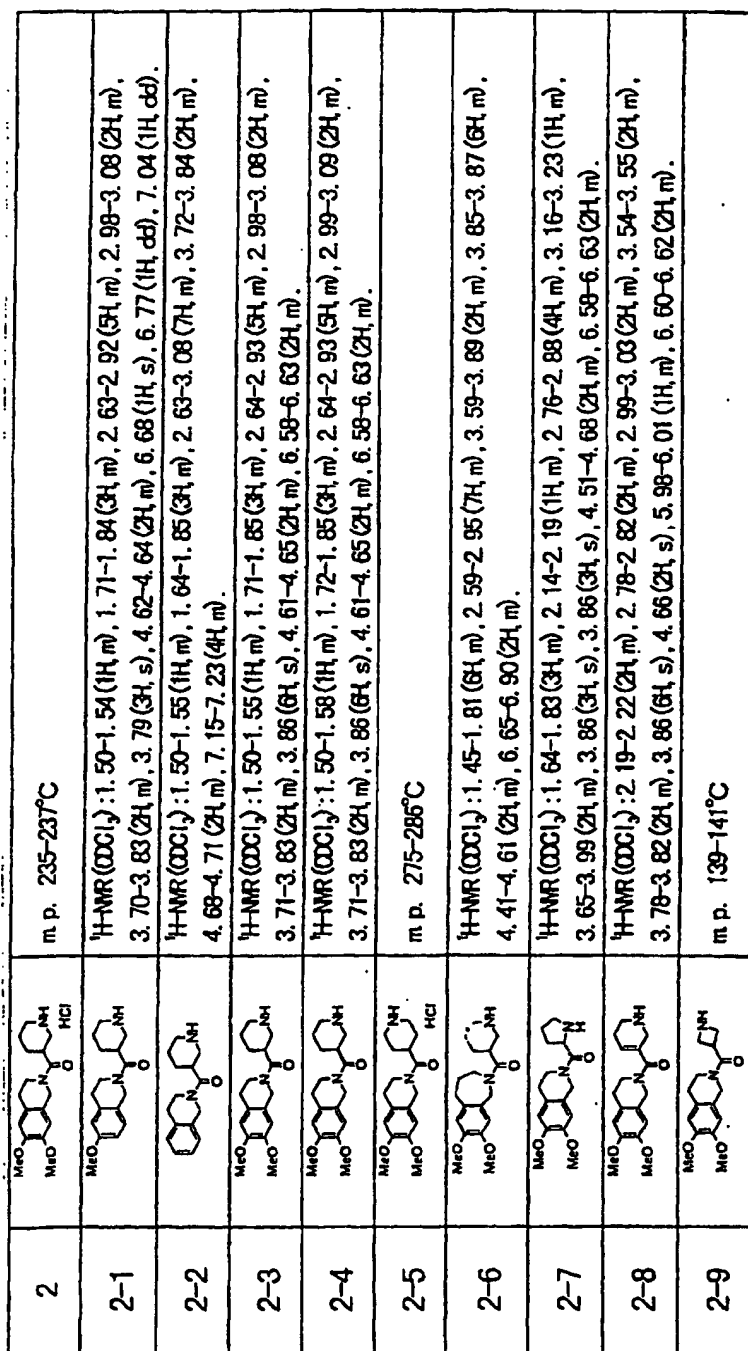 2
MeO
MeO
N
O
NH
HCl
m.p. 235-237°C
2-1
MeO
N
O
NH
¹H-NMR (CDCl₃) :1. 50-1. 54 (1H, m), 1. 71-1. 84 (3H, m), 2. 63-2. 92 (5H, m), 2. 98-3. 08 (2H, m),
3. 70-3. 83 (2H, m), 3. 79 (3H, s), 4. 62-4. 64 (2H, m), 6. 68 (1H, s), 6. 77 (1H, dd), 7. 04 (1H, dd).
2-2
N
O
NH
¹H-NMR (CDCl₃) :1. 50-1. 55 (1H, m), 1. 64-1. 85 (3H, m), 2. 63-3. 08 (7H, m), 3. 72-3. 84 (2H, m),
4. 68-4. 71 (2H, m), 7. 15-7. 23 (4H, m).
2-3
MeO
MeO
N
O
NH
¹H-NMR (CDCl₃) :1. 50-1. 55 (1H, m), 1. 71-1. 85 (3H, m), 2. 64-2. 93 (5H, m), 2. 98-3. 08 (2H, m),
3. 71-3. 83 (2H, m), 3. 86 (6H, s), 4. 61-4. 65 (2H, m), 6. 58-6. 63 (2H, m).
2-4
MeO
MeO
N
O
NH
¹H-NMR (CDCl₃) :1. 50-1. 58 (1H, m), 1. 72-1. 85 (3H, m), 2. 64-2. 93 (5H, m), 2. 99-3. 09 (2H, m),
3. 71-3. 83 (2H, m), 3. 86 (6H, s), 4. 61-4. 65 (2H, m), 6. 58-6. 63 (2H, m).
2-5
MeO
MeO
N
O
NH
HCl
m.p. 275-286°C
2-6
MeO
MeO
N
O
NH
¹H-NMR (CDCl₃) :1. 45-1. 81 (6H, m), 2. 59-2. 95 (7H, m), 3. 59-3. 89 (2H, m), 3. 85-3. 87 (6H, m),
4. 41-4. 61 (2H, m), 6. 65-6. 90 (2H, m).
2-7
MeO
MeO
N
O
N
H
¹H-NMR (CDCl₃) :1. 64-1. 83 (3H, m), 2. 14-2. 19 (1H, m), 2. 76-2. 88 (4H, m), 3. 16-3. 23 (1H, m),
3. 65-3. 99 (2H, m), 3. 86 (3H, s), 3. 86 (3H, s), 4. 51-4. 68 (2H, m), 6. 58-6. 63 (2H, m).
2-8
MeO
MeO
N
O
NH
¹H-NMR (CDCl₃) :2. 19-2. 22 (2H, m), 2. 78-2. 82 (2H, m), 2. 99-3. 03 (2H, m), 3. 54-3. 55 (2H, m),
3. 78-3. 82 (2H, m), 3. 86 (6H, s), 4. 66 (2H, s), 5. 98-6. 01 (1H, m), 6. 60-6. 62 (2H, m).
2-9
MeO
MeO
N
O
NH
m.p. 139-141°C